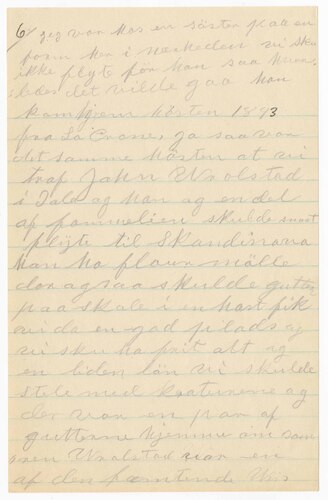 6 jeg var hos en søster paa en
farm her i nærheden vi sku
ikke flyte før han saa hvor
ledes det vilde gaa han
kom hjem høsten 1893
fra La Crosse, ja saa var
det samme høsten at vi
traf John Wrolstad
i Iola og han og en del
af familien skulde snart
flyte til Skandinavia
han ha flour mølle
der og saa skulde gutten
paa skole i en han fik
vi da en god plads og
vi sku ha frit alt og
en liden løn vi skulde
stele med kreaturene og
der var en par af
guttene hjemme om som
ren Wrolstad var en
af den femtende Wis